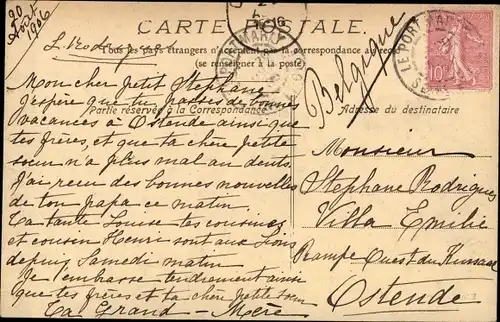 20 Août 1906
CARTE POSTALE.
Tous les pays étrangers n'acceptent pas la correspondance au recto
(se renseigner à la poste)
Partie réservée à la Correspondance
Mon cher petit Stephane
J'espère que tu passes de bonnes
vacances à Ostende ainsi que
tes frères, et que ta chère petite
sœur n'a plus mal aux dents.
J'ai reçu des bonnes nouvelles
de ton papa ce matin
Ta tante Louise tes cousines
et cousin Henri sont aux
depuis Samedi matin
Je t'embrasse tendrement ainsi
que tes frères et ta chère petite sœur
Ta Grand-Mère
Belgique
Adresse du destinataire
Monsieur
Stephane Rodrigues
Villa Emilie
Rampe Ouest du Kursaal
Ostende
LE PORT-MARLY
10